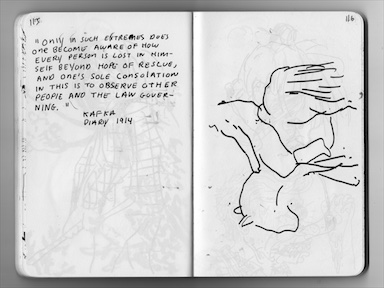 115
116
"ONLY IN SUCH EXTREMES DOES
ONE BECOME AWARE OF HOW
EVERY PERSON IS LOST IN HIM-
SELF BEYOND HOPE OF RESCUE,
AND ONE'S SOLE CONSOLATION
IN THIS IS TO OBSERVE OTHER
PEOPLE AND THE LAW GOVER-
NING."
KAFKA
DIARY 1914